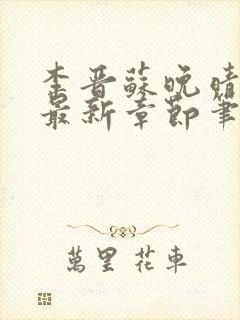 李晋蘇晚晴
最新章節筆
萬里花車